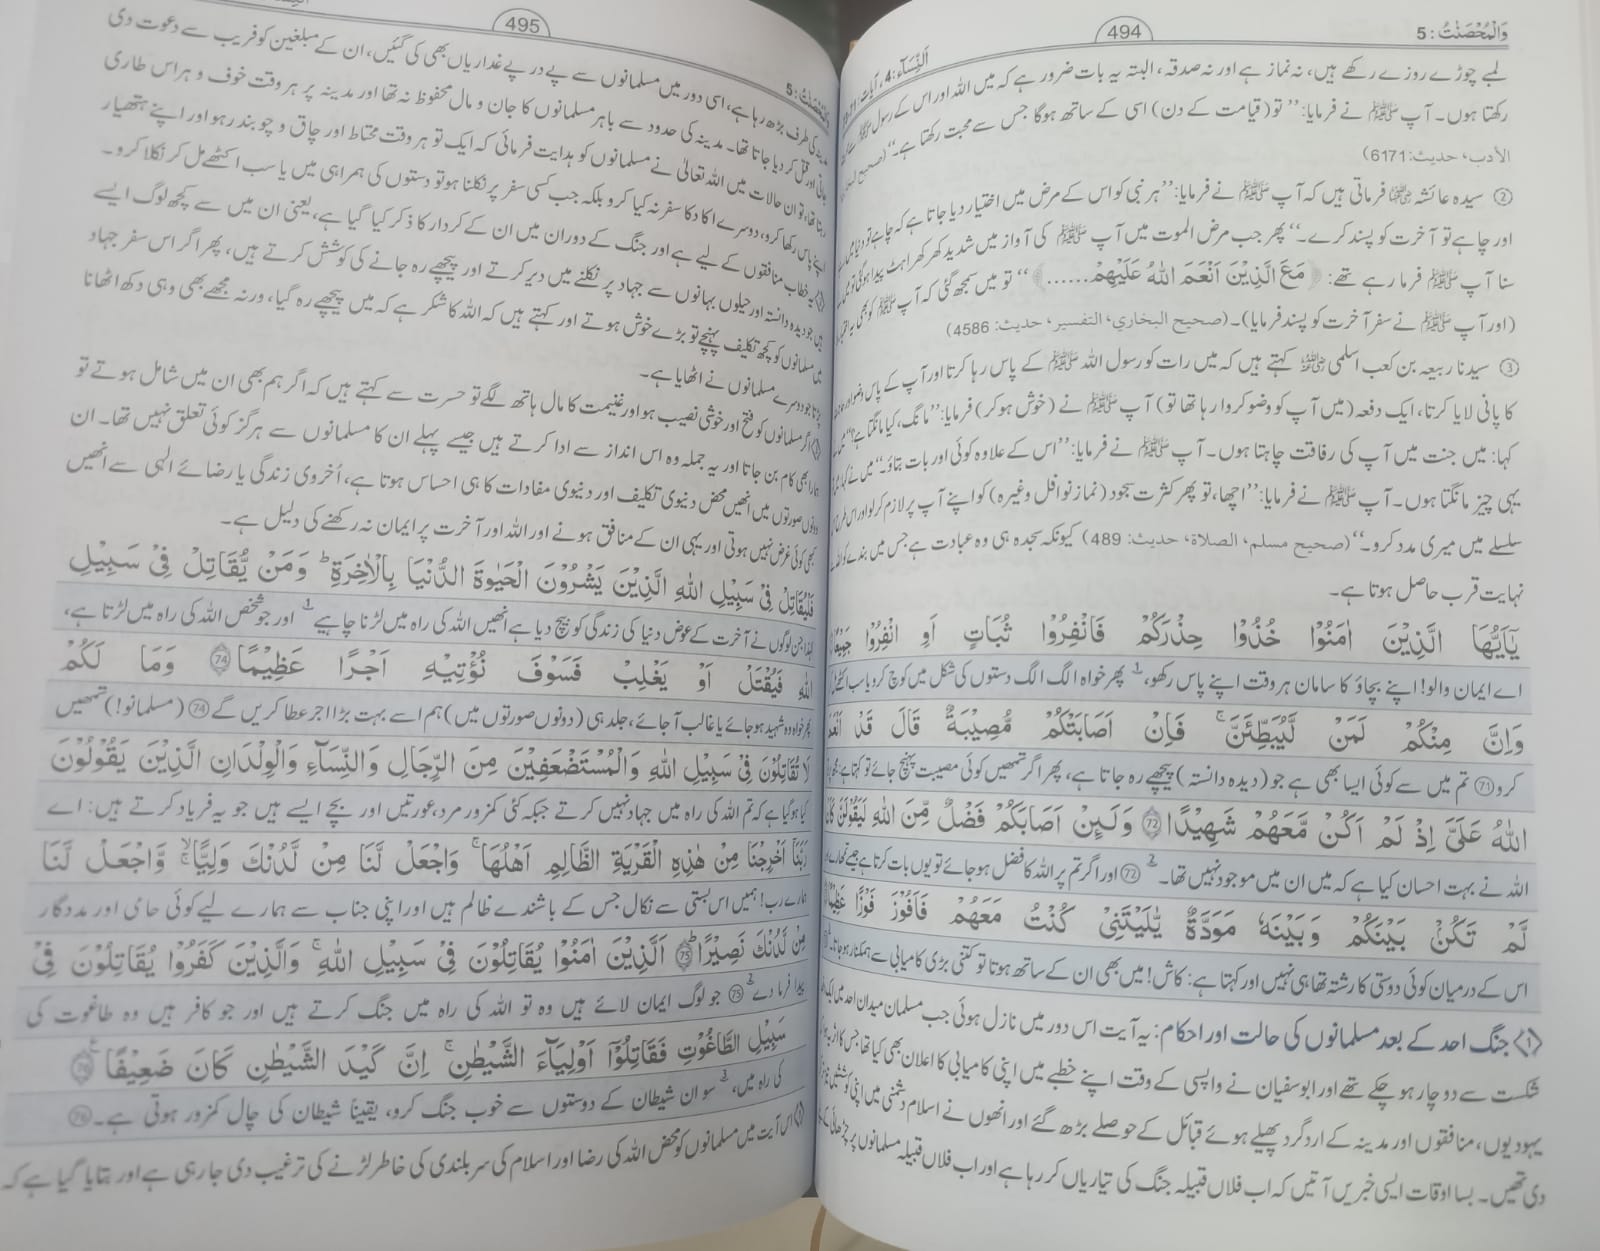 وَالْمُحْصَنٰتُ: 5
494
اَلنِّسَآء: 4، آیات:
لمبے چوڑے روزے رکھے ہیں، نہ نماز ہے اور نہ صدقہ، البتہ یہ بات ضرور ہے کہ میں اللہ اور اس کے رسول ﷺ سے محبت
رکھتا ہوں۔ آپ ﷺ نے فرمایا: ’’تو (قیامت کے دن) اسی کے ساتھ ہوگا جس سے محبت رکھتا ہے۔‘‘ (صحیح
الأدب، حدیث: 6171)
② سیدہ عائشہ ؓ فرماتی ہیں کہ آپ ﷺ نے فرمایا: ’’ہر نبی کو اس کے مرض میں اختیار دیا جاتا ہے کہ چاہے تو دنیا
اور چاہے تو آخرت کو پسند کرے۔‘‘ پھر جب مرض الموت میں آپ ﷺ کی آواز میں شدید کھرکھراہٹ پیدا ہوئی تو میں نے
سنا آپ ﷺ فرما رہے تھے: ﴿مَعَ الَّذِيْنَ اَنْعَمَ اللّٰهُ عَلَيْهِمْ......﴾‘‘ تو میں سمجھ گئی کہ آپ ﷺ کو بھی یہ اختیار
(اور آپ ﷺ نے سفر آخرت کو پسند فرمایا)۔ (صحیح البخاري، التفسیر، حدیث: 4586)
③ سیدنا ربیعہ بن کعب اسلمی ؓ کہتے ہیں کہ میں رات کو رسول اللہ ﷺ کے پاس رہا کرتا اور آپ کے پاس وضو اور
کا پانی لایا کرتا، ایک دفعہ (میں آپ کو وضو کروا رہا تھا تو) آپ ﷺ نے (خوش ہو کر) فرمایا: ’’مانگ، کیا مانگتا ہے؟‘‘
کہا: میں جنت میں آپ کی رفاقت چاہتا ہوں۔ آپ ﷺ نے فرمایا: ’’اس کے علاوہ کوئی اور بات بتاؤ۔‘‘ میں نے کہا:
یہی چیز مانگتا ہوں۔ آپ ﷺ نے فرمایا: ’’اچھا، تو پھر کثرت سجود (نماز نوافل وغیرہ) کو اپنے آپ پر لازم کر لو اور اس طرح
سلسلے میں میری مدد کرو۔‘‘ (صحیح مسلم، الصلاة، حدیث: 489) کیونکہ سجدہ ہی وہ عبادت ہے جس میں بندے کو اللہ
نہایت قرب حاصل ہوتا ہے۔
يٰٓاَيُّهَا الَّذِيْنَ اٰمَنُوْا خُذُوْا حِذْرَكُمْ فَانْفِرُوْا ثُبَاتٍ اَوِ انْفِرُوْا جَمِيْعًا
اے ایمان والو! اپنے بچاؤ کا سامان ہر وقت اپنے پاس رکھو،1 پھر خواہ الگ الگ دستوں کی شکل میں کوچ کرو یا سب اکٹھے
وَاِنَّ مِنْكُمْ لَمَنْ لَّيُبَطِّئَنَّ ۚ فَاِنْ اَصَابَتْكُمْ مُّصِيْبَةٌ قَالَ قَدْ اَنْعَمَ
کرو ⑦① تم میں سے کوئی ایسا بھی ہے جو (دیدہ دانستہ) پیچھے رہ جاتا ہے، پھر اگر تمھیں کوئی مصیبت پہنچ جائے تو کہتا ہے:
اللّٰهُ عَلَيَّ اِذْ لَمْ اَكُنْ مَّعَهُمْ شَهِيْدًا ﴿72﴾ وَلَىِٕنْ اَصَابَكُمْ فَضْلٌ مِّنَ اللّٰهِ لَيَقُوْلَنَّ كَاَنْ
اللہ نے بہت احسان کیا ہے کہ میں ان میں موجود نہیں تھا۔2 ⑦② اور اگر تم پر اللہ کا فضل ہو جائے تو یوں بات کرتا ہے جیسے تمھارے
لَّمْ تَكُنْۢ بَيْنَكُمْ وَبَيْنَهٗ مَوَدَّةٌ يّٰلَيْتَنِيْ كُنْتُ مَعَهُمْ فَاَفُوْزَ فَوْزًا عَظِيْمًا
اس کے درمیان کوئی دوستی کا رشتہ تھا ہی نہیں اور کہتا ہے: کاش! میں بھی ان کے ساتھ ہوتا تو کتنی بڑی کامیابی سے ہمکنار ہو جاتا۔
⟨1⟩ جنگ احد کے بعد مسلمانوں کی حالت اور احکام: یہ آیت اس دور میں نازل ہوئی جب مسلمان میدان احد میں ایک
شکست سے دوچار ہو چکے تھے اور ابوسفیان نے واپسی کے وقت اپنے خطبے میں اپنی کامیابی کا اعلان بھی کیا تھا جس کا اثر
یہودیوں، منافقوں اور مدینہ کے اردگرد پھیلے ہوئے قبائل کے حوصلے بڑھ گئے اور انھوں نے اسلام دشمنی میں اپنی کوششیں
دی تھیں۔ بسا اوقات ایسی خبریں آتیں کہ اب فلاں قبیلہ جنگ کی تیاریاں کر رہا ہے اور اب فلاں قبیلہ مسلمانوں پر چڑھائی کے
495
وَالْمُحْصَنٰتُ: 5
مدینہ کی طرف بڑھ رہا ہے، اسی دور میں مسلمانوں سے پے در پے غداریاں بھی کی گئیں، ان کے مبلغین کو فریب سے دعوت دی
جاتی اور قتل کر دیا جاتا تھا۔ مدینہ کی حدود سے باہر مسلمانوں کا جان و مال محفوظ نہ تھا اور مدینہ پر ہر وقت خوف و ہراس طاری
رہتا تھا، تو ان حالات میں اللہ تعالیٰ نے مسلمانوں کو ہدایت فرمائی کہ ایک تو ہر وقت محتاط اور چاق و چوبند رہو اور اپنے ہتھیار
اپنے پاس رکھا کرو، دوسرے اکا دکا سفر نہ کیا کرو بلکہ جب کسی سفر پر نکلنا ہو تو دستوں کی ہمراہی میں یا سب اکٹھے مل کر نکلا کرو۔
⟨2⟩ یہ خطاب منافقوں کے لیے ہے اور جنگ کے دوران میں ان کے کردار کا ذکر کیا گیا ہے، یعنی ان میں سے کچھ لوگ ایسے
ہیں جو دیدہ دانستہ اور حیلوں بہانوں سے جہاد پر نکلنے میں دیر کرتے اور پیچھے رہ جانے کی کوشش کرتے ہیں، پھر اگر اس سفر جہاد
میں مسلمانوں کو کچھ تکلیف پہنچے تو بڑے خوش ہوتے اور کہتے ہیں کہ اللہ کا شکر ہے کہ میں پیچھے رہ گیا، ورنہ مجھے بھی وہی دکھ اٹھانا
پڑتا جو دوسرے مسلمانوں نے اٹھایا ہے۔
⟨3⟩ اگر مسلمانوں کو فتح اور خوشی نصیب ہو اور غنیمت کا مال ہاتھ لگے تو حسرت سے کہتے ہیں کہ اگر ہم بھی ان میں شامل ہوتے تو
ہمارا بھی کام بن جاتا اور یہ جملہ وہ اس انداز سے ادا کرتے ہیں جیسے پہلے ان کا مسلمانوں سے ہرگز کوئی تعلق نہیں تھا۔ ان
دونوں صورتوں میں انھیں محض دنیوی تکلیف اور دنیوی مفادات کا ہی احساس ہوتا ہے، اُخروی زندگی یا رضائے الٰہی سے انھیں
کبھی کوئی غرض نہیں ہوتی اور یہی ان کے منافق ہونے اور اللہ اور آخرت پر ایمان نہ رکھنے کی دلیل ہے۔
فَلْيُقَاتِلْ فِيْ سَبِيْلِ اللّٰهِ الَّذِيْنَ يَشْرُوْنَ الْحَيٰوةَ الدُّنْيَا بِالْاٰخِرَةِ ؕ وَمَنْ يُّقَاتِلْ فِيْ سَبِيْلِ
لہٰذا جن لوگوں نے آخرت کے عوض دنیا کی زندگی کو بیچ دیا ہے انھیں اللہ کی راہ میں لڑنا چاہیے1 اور جو شخص اللہ کی راہ میں لڑتا ہے،
اللّٰهِ فَيُقْتَلْ اَوْ يَغْلِبْ فَسَوْفَ نُؤْتِيْهِ اَجْرًا عَظِيْمًا ﴿74﴾ وَمَا لَكُمْ
پھر خواہ وہ شہید ہو جائے یا غالب آ جائے، جلد ہی (دونوں صورتوں میں) ہم اسے بہت بڑا اجر عطا کریں گے ⑦④ (مسلمانو!) تمھیں
لَا تُقَاتِلُوْنَ فِيْ سَبِيْلِ اللّٰهِ وَالْمُسْتَضْعَفِيْنَ مِنَ الرِّجَالِ وَالنِّسَآءِ وَالْوِلْدَانِ الَّذِيْنَ يَقُوْلُوْنَ
کیا ہو گیا ہے کہ تم اللہ کی راہ میں جہاد نہیں کرتے جبکہ کئی کمزور مرد، عورتیں اور بچے ایسے ہیں جو یہ فریاد کرتے ہیں: اے
رَبَّنَآ اَخْرِجْنَا مِنْ هٰذِهِ الْقَرْيَةِ الظَّالِمِ اَهْلُهَا ۚ وَاجْعَلْ لَّنَا مِنْ لَّدُنْكَ وَلِيًّا ۙ وَّاجْعَلْ لَّنَا
ہمارے رب! ہمیں اس بستی سے نکال جس کے باشندے ظالم ہیں اور اپنی جناب سے ہمارے لیے کوئی حامی اور مددگار
مِنْ لَّدُنْكَ نَصِيْرًا ﴿75﴾ اَلَّذِيْنَ اٰمَنُوْا يُقَاتِلُوْنَ فِيْ سَبِيْلِ اللّٰهِ ۚ وَالَّذِيْنَ كَفَرُوْا يُقَاتِلُوْنَ فِيْ
پیدا فرما دے2 ⑦⑤ جو لوگ ایمان لائے ہیں وہ تو اللہ کی راہ میں جنگ کرتے ہیں اور جو کافر ہیں وہ طاغوت کی
سَبِيْلِ الطَّاغُوْتِ فَقَاتِلُوْٓا اَوْلِيَآءَ الشَّيْطٰنِ ۚ اِنَّ كَيْدَ الشَّيْطٰنِ كَانَ ضَعِيْفًا ﴿76﴾
کی راہ میں،3 سو ان شیطان کے دوستوں سے خوب جنگ کرو، یقیناً شیطان کی چال کمزور ہوتی ہے۔ ⑦⑥
⟨1⟩ اس آیت میں مسلمانوں کو محض اللہ کی رضا اور اسلام کی سربلندی کی خاطر لڑنے کی ترغیب دی جا رہی ہے اور بتایا گیا ہے کہ